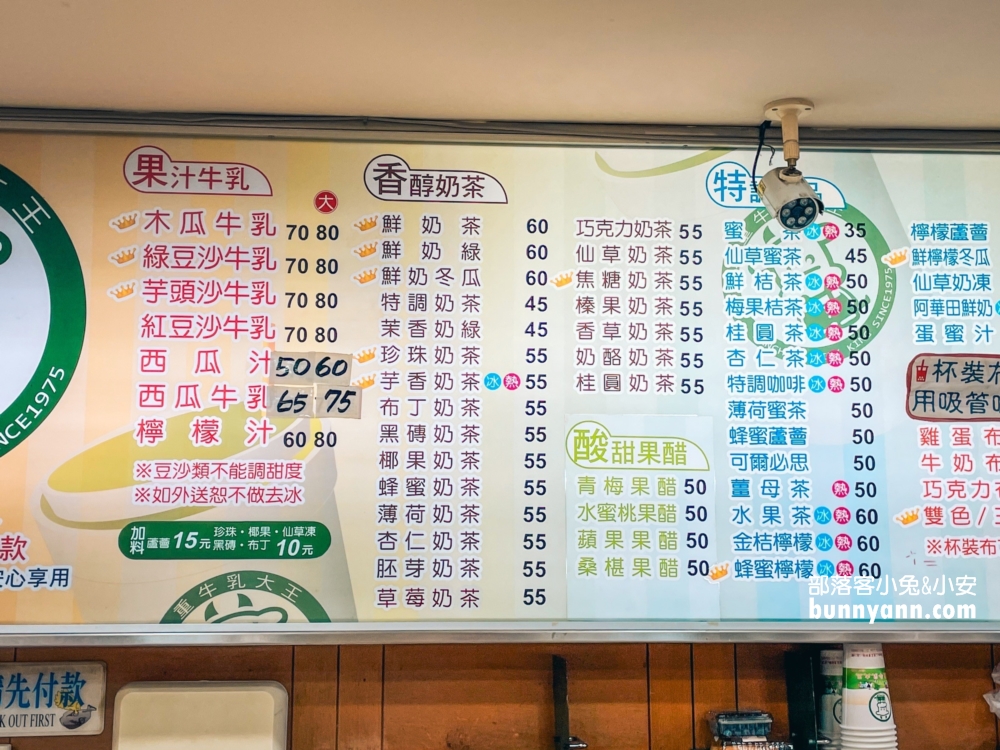 王
SINCE1975
款
安心享用
果汁牛乳
大
木瓜牛乳 70 80
綠豆沙牛乳 70 80
芋頭沙牛乳 70 80
紅豆沙牛乳 70 80
西瓜汁 50 60
西瓜牛乳 65 75
檸檬汁 60 80
※豆沙類不能調甜度
※如外送恕不做去冰
加料 蘆薈15元 珍珠・椰果・仙草凍 黑磚・布丁10元
重牛乳大王
香醇奶茶
鮮奶茶 60
鮮奶綠 60
鮮奶冬瓜 60
特調奶茶 45
茉香奶綠 45
珍珠奶茶 55
芋香奶茶 冰 熱 55
布丁奶茶 55
黑磚奶茶 55
椰果奶茶 55
蜂蜜奶茶 55
薄荷奶茶 55
杏仁奶茶 55
胚芽奶茶 55
草莓奶茶 55
巧克力奶茶 55
仙草奶茶 55
焦糖奶茶 55
榛果奶茶 55
香草奶茶 55
奶酪奶茶 55
桂圓奶茶 55
酸甜果醋
青梅果醋 50
水蜜桃果醋 50
蘋果果醋 50
桑椹果醋 50
特
蜜 茶 冰 熱 35
仙草蜜茶 45
鮮桔茶 冰 熱 50
梅果桔茶 冰 熱 50
桂圓茶 冰 熱 50
杏仁茶 冰 熱 50
特調咖啡 冰 熱 50
薄荷蜜茶 50
蜂蜜蘆薈 50
可爾必思 50
薑母茶 熱 50
水果茶 冰 熱 60
金桔檸檬 冰 熱 60
蜂蜜檸檬 冰 熱 60
SINCE1975
檸檬蘆薈
鮮檸檬冬瓜
仙草奶凍
阿華田鮮奶
蛋蜜汁
杯裝布
用吸管
雞蛋布
牛奶布
巧克力布
雙色/
※杯裝布
部落客小兔&小安
bunnyann.com
先付款
OUT FIRST